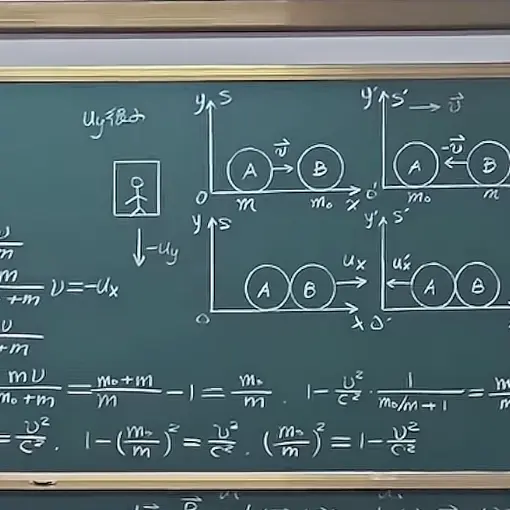 uy很小
y S
A v⃗ B
O m m₀ x
y' S' → v⃗
A -v⃗ B
O' m₀ m
-uy
y S
A B ux
O x
y' S'
u'x A B
O'
m
+m v=-ux
+m
mv/(m₀+m) = (m₀+m)/m - 1 = m₀/m . 1 - v²/c² · 1/(m₀/m+1) =
= v²/c² . 1-(m₀/m)² = v²/c² . (m₀/m)² = 1 - v²/c²